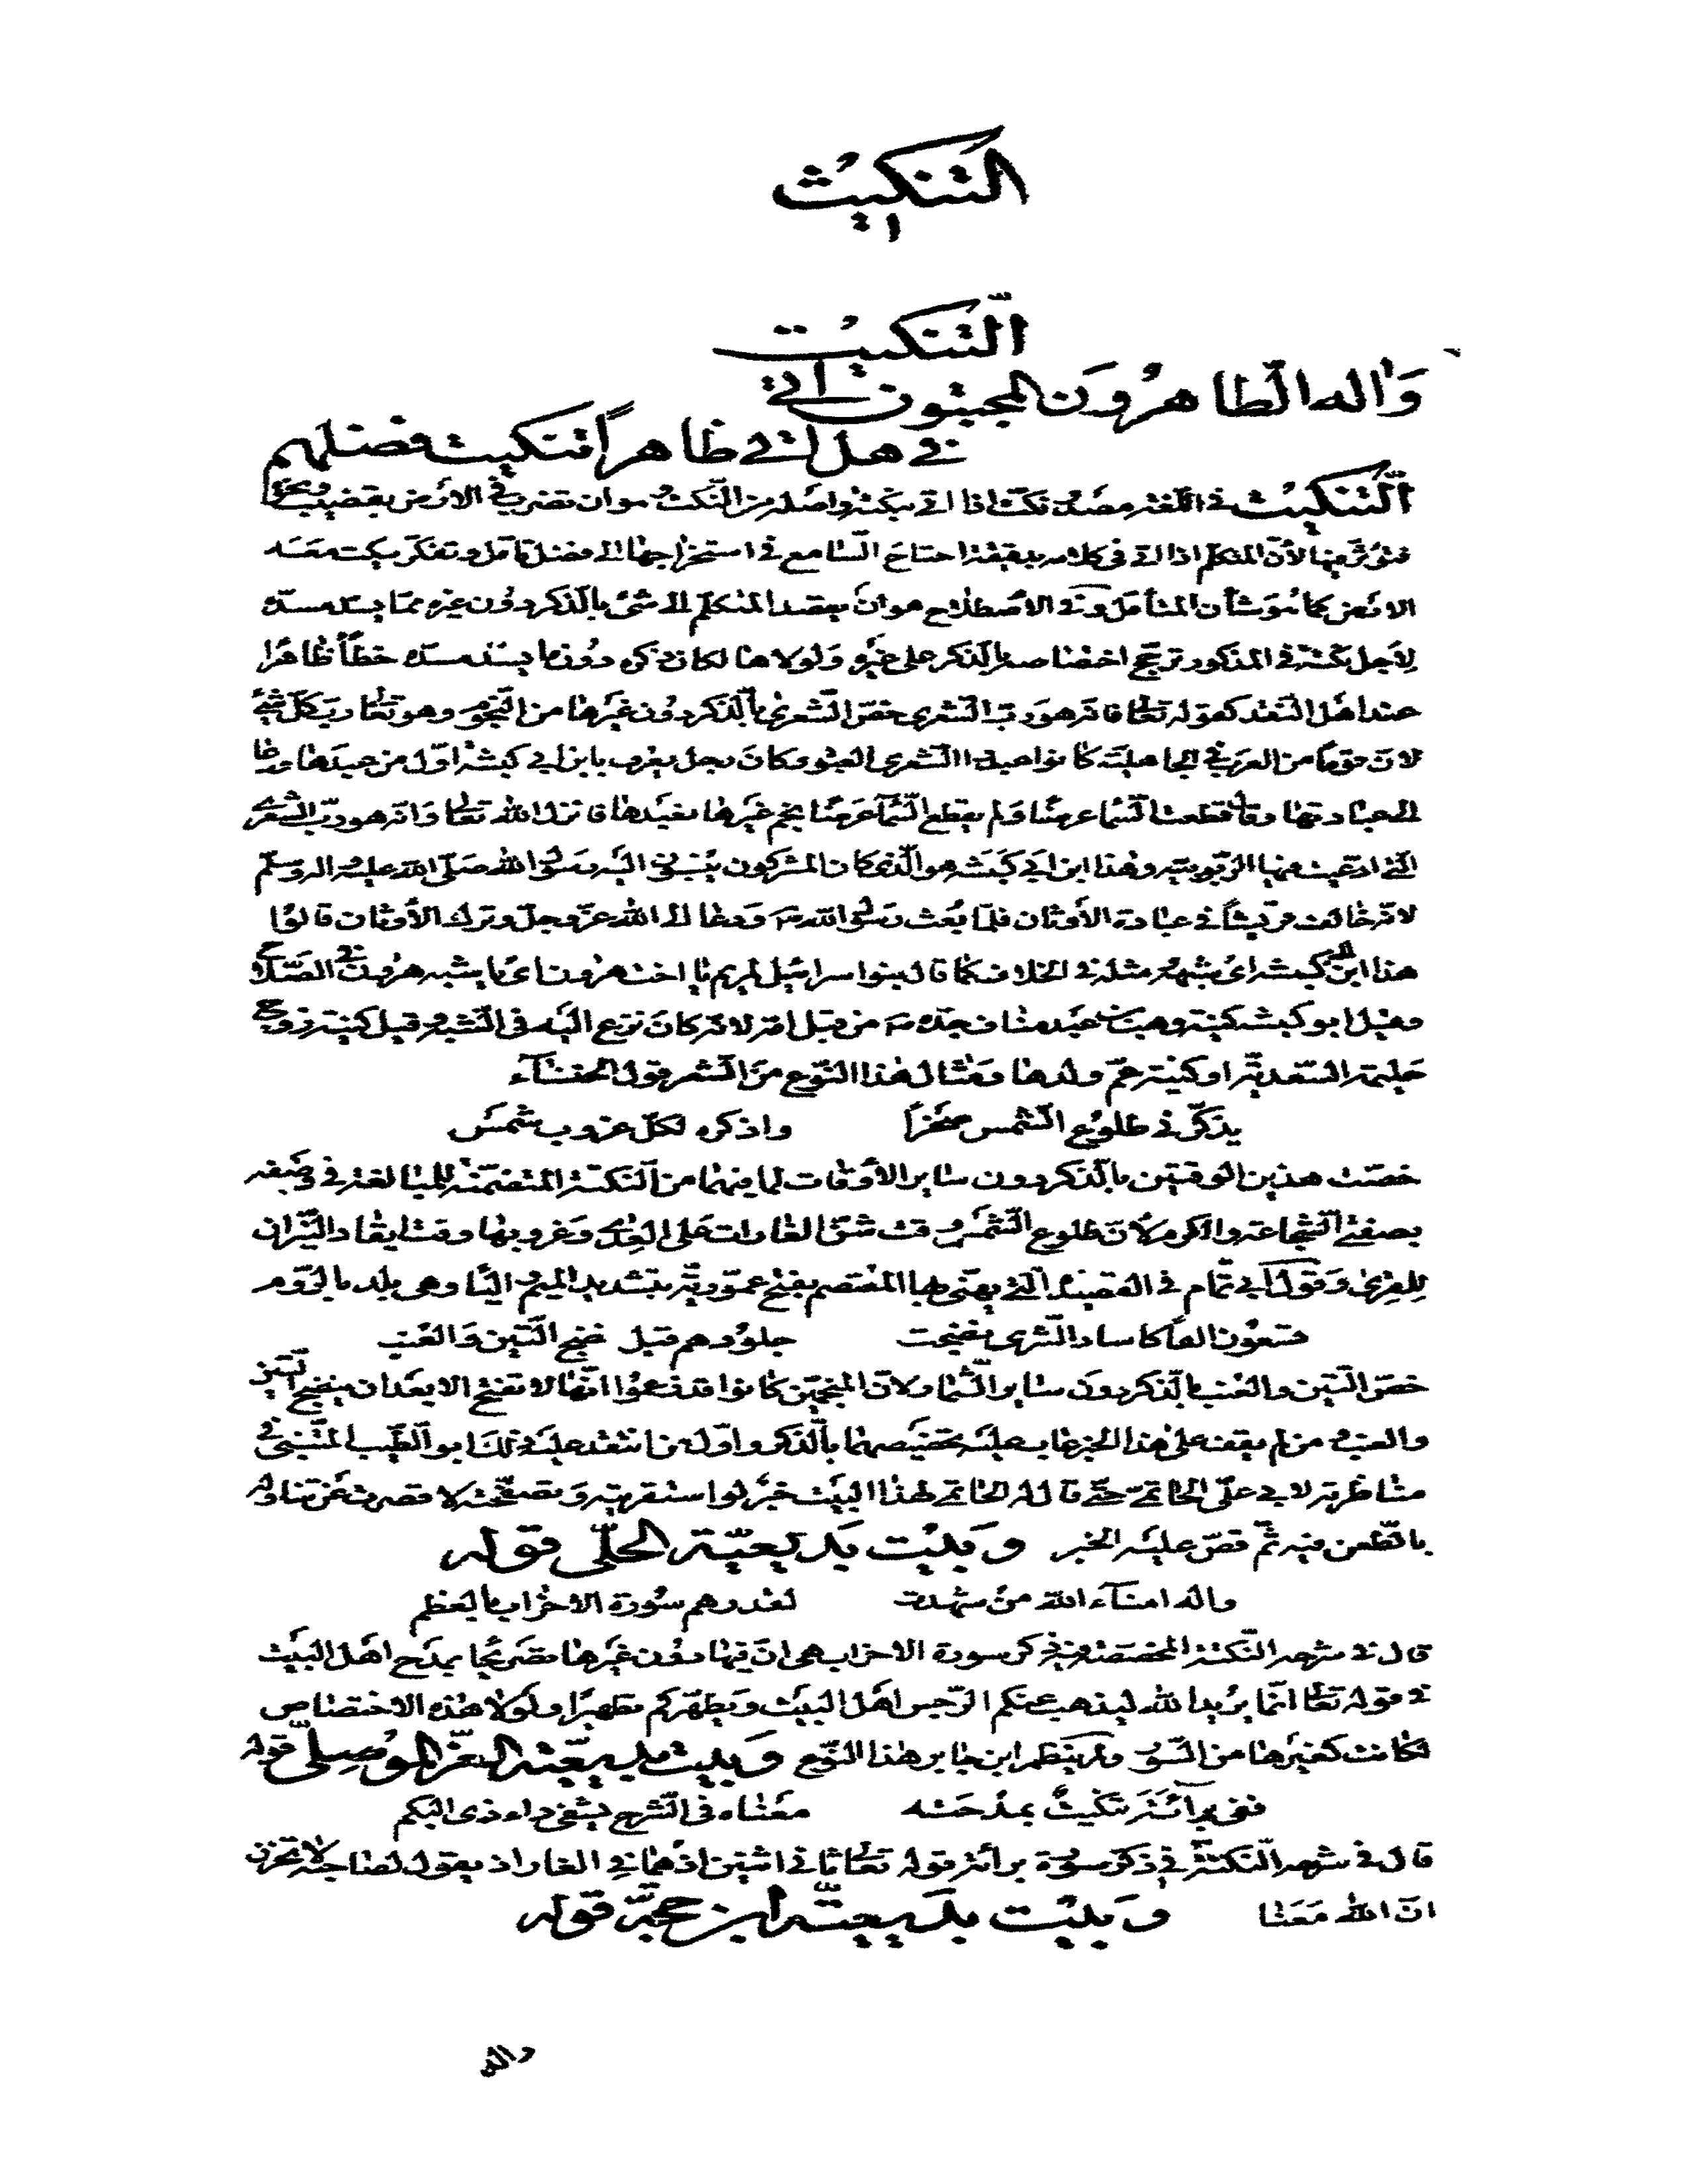 التنكيت
التنكيت
وَاله الطاهرُونَ المجتبون اتى
في هل اتى ظاهراً تنكيت فضلهم
التنكيت في اللغة مصدر نكت اذا اتى بنكتة واصله من النكت وهو ان تضرب في الارض بقضيب ونحوه
فتؤثر فيها لأن المتكلم اذا اتى في كلامه بدقيقة احتاج السامع في استخراجها الى فضل تأمل وتفكر ينكت معه
الارض كما هو شأن المتأمل وفي الاصطلاح هو ان يقصد المتكلم الى شئ بالذكر دون غيره مما يسد مسده
لاجل نكتة في المذكور ترجح اختصاصه بالذكر على غيره ولولاها لكان ذكره دون ما يسد مسده خطأ ظاهرا
عند اهل النقد كقوله تعالى فانه هو رب الشعرى خص الشعرى بالذكر دون غيرها من النجوم وهو تعالى رب كل شئ
لان قوما من العرب في الجاهلية كانوا عبدوا الشعرى العبور وكان رجل يعرف بابن ابي كبشة اول من عبدها ودعا
الى عبادتها وقال قطعت السما عرضا ولم يقطع السما عرضا نجم غيرها فعبدها فانزل الله تعالى وانه هو رب الشعرى
التي ادعيت فيها الربوبية وهذا ابن ابي كبشة هو الذي كان المشركون ينسبون اليه رسول الله صلى الله عليه واله وسلم
لانه خالف قريشا في عبادة الأوثان فلما بعث رسول الله ص ودعا الى الله عز وجل وترك الأوثان قالوا
هذا ابن ابي كبشة اى شبهه ومثله في الخلاف كما قال بنوا سرائيل لمريم يا اخت هرون اى يا شبه هرون في الصلاح
وقيل ابو كبشة كنية وهب بن عبد مناف جده ص من قبل امه لانه كان نزع اليه في الشبه وقيل كنية زوج
حليمة السعدية او كنية عم ولدها ومثال هذا النوع من الشعر قول الخنساء
يذكرني طلوع الشمس صخراً واذكره لكل غروب شمس
خصت هذين الوقتين بالذكر دون سائر الأوقات لما فيهما من النكتة المتضمنة للمبالغة في وصفه
بصفتي الشجاعة والكرم لأن طلوع الشمس وقت شن الغارات على العدى وغروبها وقت ايقاد النيران
للقرى وقول ابي تمام في القصيدة التي يهني بها المعتصم بفتح عمورية بتشديد الميم والياء وهي بلد بالروم
تسعون الفا كاساد الشرى نضجت جلودهم قبل نضج التين والعنب
خص التين والعنب بالذكر دون سائر الثمار لان المنجمين كانوا قد زعموا انها لا تفتح الا بعد ان ينضج التين
والعنب ومن لم يقف على هذا الخبر عاب عليه تخصيصهما بالذكر واول من انتقد عليه ذلك ابو الطيب المتنبي في
مناظرته لابي على الحاتمي حتى قال له الحاتمي لهذا البيت خبر لو استقريته وتصفحته لا قصرت عن تناوله
بالطعن فيه ثم قص عليه الخبر وبيت بديعية الحلي قوله
واله امناء الله من شهدت لقدرهم سورة الاحزاب بالعظم
قال في شرحه النكتة المخصصة في ذكر سورة الاحزاب هي ان فيها دون غيرها تصريحا بمدح اهل البيت
في قوله تعالى انما يريد الله ليذهب عنكم الرجس اهل البيت ويطهركم تطهيرا ولولا هذه الاختصاص
لكانت كغيرها من السور ولم ينظم ابن جابر هذا النوع وبيت بديعية العز الموصلي قوله
ففي براءة تنكيت بمدحته معناه في الشرح يشفي داء ذي البكم
قال في شرحه النكتة في ذكر سورة براءة قوله تعالى ثاني اثنين اذهما في الغار اذ يقول لصاحبه لا تحزن
ان الله معنا وبيت بديعية ابن حجة قوله
واله